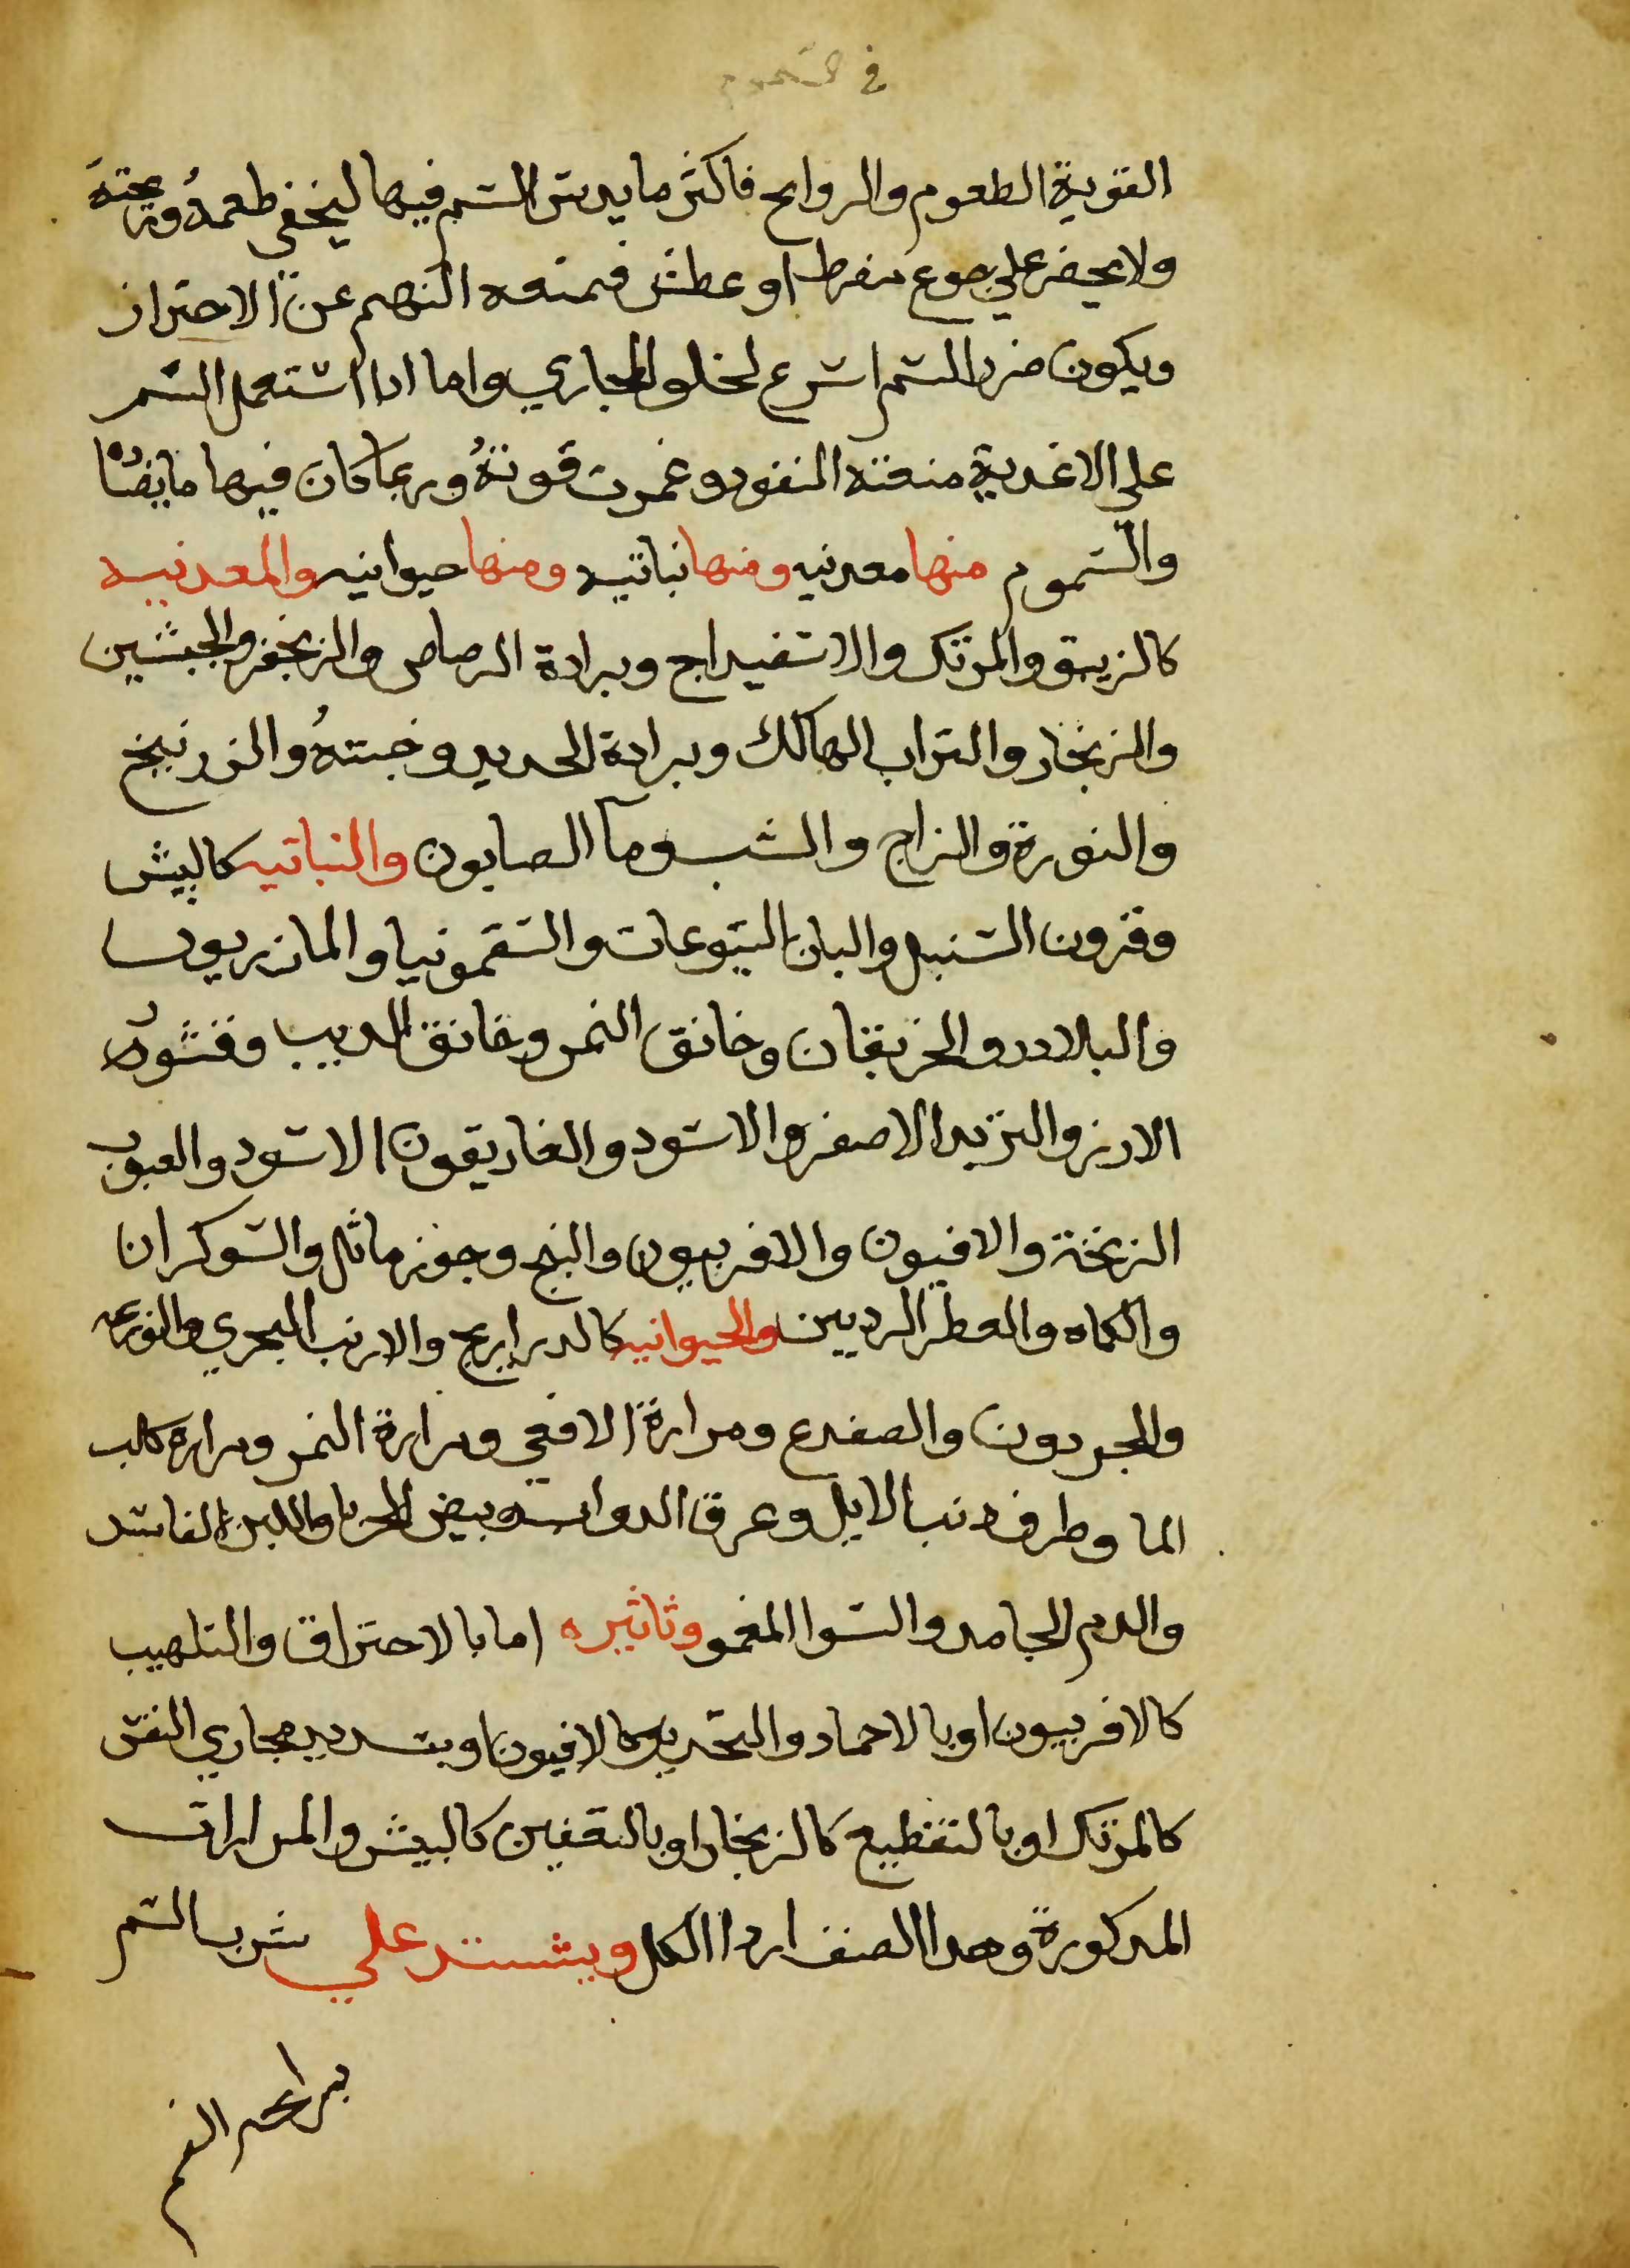 في السموم
القوية الطعوم والروايح فاكثر ما يدس السم فيها ليخفى طعمهُ وريحته
ولا يحضر علي جوع مفرط او عطش فيمنعه النهم عن الاحتراز
ويكون ضرر السم اسرع لخلو المجاري واما ادا استعمل السم
على الاغدية منعته النفود وغمرت قوتهُ وربما كان فيها ما يضادهُ
والسموم منها معدنيه ومنها نباتيه ومنها حيوانيه والمعدنيه
كالزيبق والمرتك والاسفيداج وبرادة الرصاص والزنجفر والجبسين
والزنجار والتراب الهالك وبرادة الحديد وخبتهُ والزرنيخ
والنورة والزاج والشب وما الصابون والنباتيه كالبيش
وقرون السنبل والبان اليتوعات والسقمونيا والمازريون
والبلادر والخربقان وخانق النمر وخانق الديب وقشور
الارز والتربد الاصفر والاسود والغاريقون الاسود والحبوب
الزنخة والافيون والافربيون والبنج وجوز ماثل والسوكران
والكماه والفطر الرديين والحيوانيه كالدراريح والارنب البحري والوزعه
والحردون والضفدع ومرارة الافعي ومرارة النمر ومرارة كلب
الما وطرف دنب الايل وعرق الدواب وبيض الحربا واللبن الفاسد
والدم الجامد والشوا المغمو وتاثيره اما بالاحتراق والتلهيب
كالافربيون او بالاجماد والتخدير كالافيون او بتسديد مجاري النفس
كالمرتك او بالتقطيع كالزنجار او بالتعفين كالبيش والمرارات
المدكورة وهدا الصنف اردا الكل ويستدعلي شرب السم
برايحه الفم